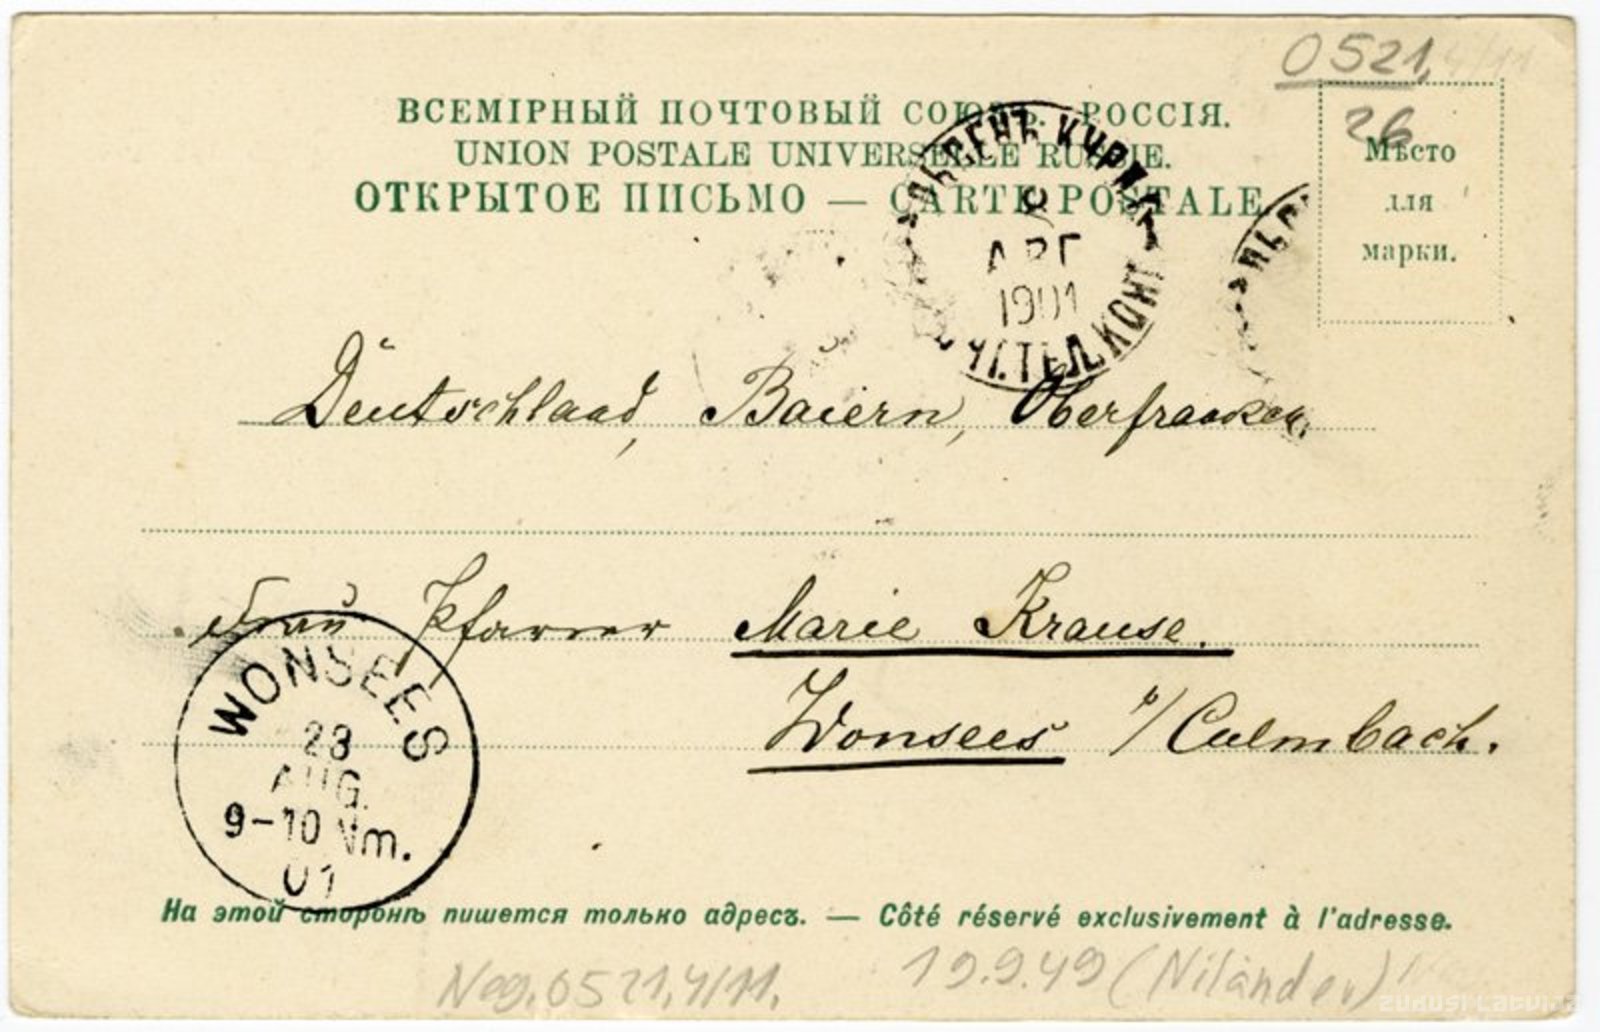 0521,4/11
26
ВСЕМІРНЫЙ ПОЧТОВЫЙ СОЮЗЪ. РОССІЯ.
UNION POSTALE UNIVERSELLE RUSSIE.
ОТКРЫТОЕ ПИСЬМО — CARTE POSTALE
Мѣсто
для
марки.
АВГ
1901
Deutschland, Baiern, Oberfranken.
Frau Pfarrer Marie Krause.
Wonsees b/Culmbach.
WONSEES
28
AUG.
9-10 Nm.
01
На этой сторонѣ пишется только адресъ. — Côté réservé exclusivement à l'adresse.
Neg. 0521,4/11. 19.9.49 (Niländer)
zudusi Latvija